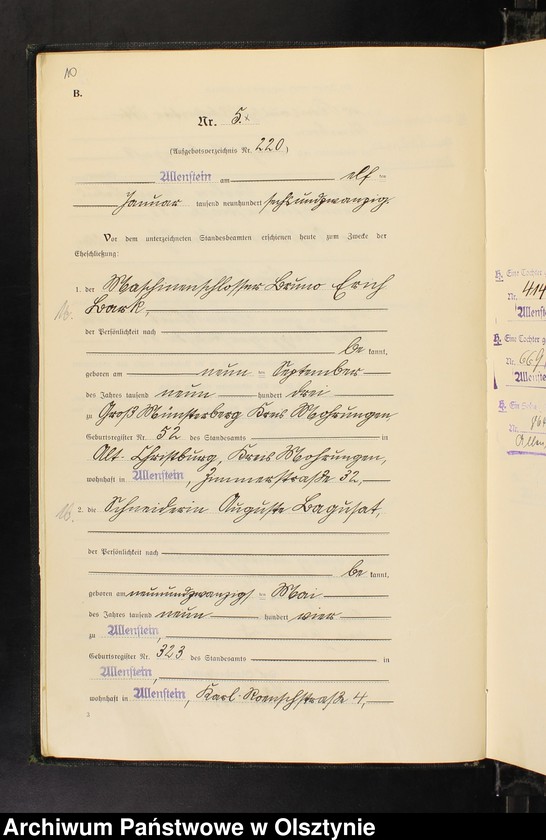 10
B.
Nr. 5.
(Aufgebotsverzeichnis Nr. 220.)
Allenstein am elf ten
Januar tausend neunhundert sechsundzwanzig
Vor dem unterzeichneten Standesbeamten erschienen heute zum Zwecke der
Eheschließung:
1. der Maschinenschlosser Bruno Erich
Bark,
der Persönlichkeit nach
be kannt,
geboren am neun ten September
des Jahres tausend neun hundert drei
zu Groß Münsterberg Kreis Mohrungen
Geburtsregister Nr. 52 des Standesamts in
Alt-Christburg, Kreis Mohrungen,
wohnhaft in Allenstein, Zimmerstraße 32,
2. die Schneiderin Auguste Bagusat,
der Persönlichkeit nach
be kannt,
geboren am neunundzwanzigst en Mai
des Jahres tausend neun hundert vier
zu Allenstein,
Geburtsregister Nr. 323 des Standesamts in
Allenstein,
wohnhaft in Allenstein, Karl-Roenschstraße 4,
3
H. Eine Tochter
Nr. 414
Allenst
H. Eine Tochter
Nr. 669
Allenste
H. Ein
Nr.
Allen
Archiwum Państwowe w Olsztynie